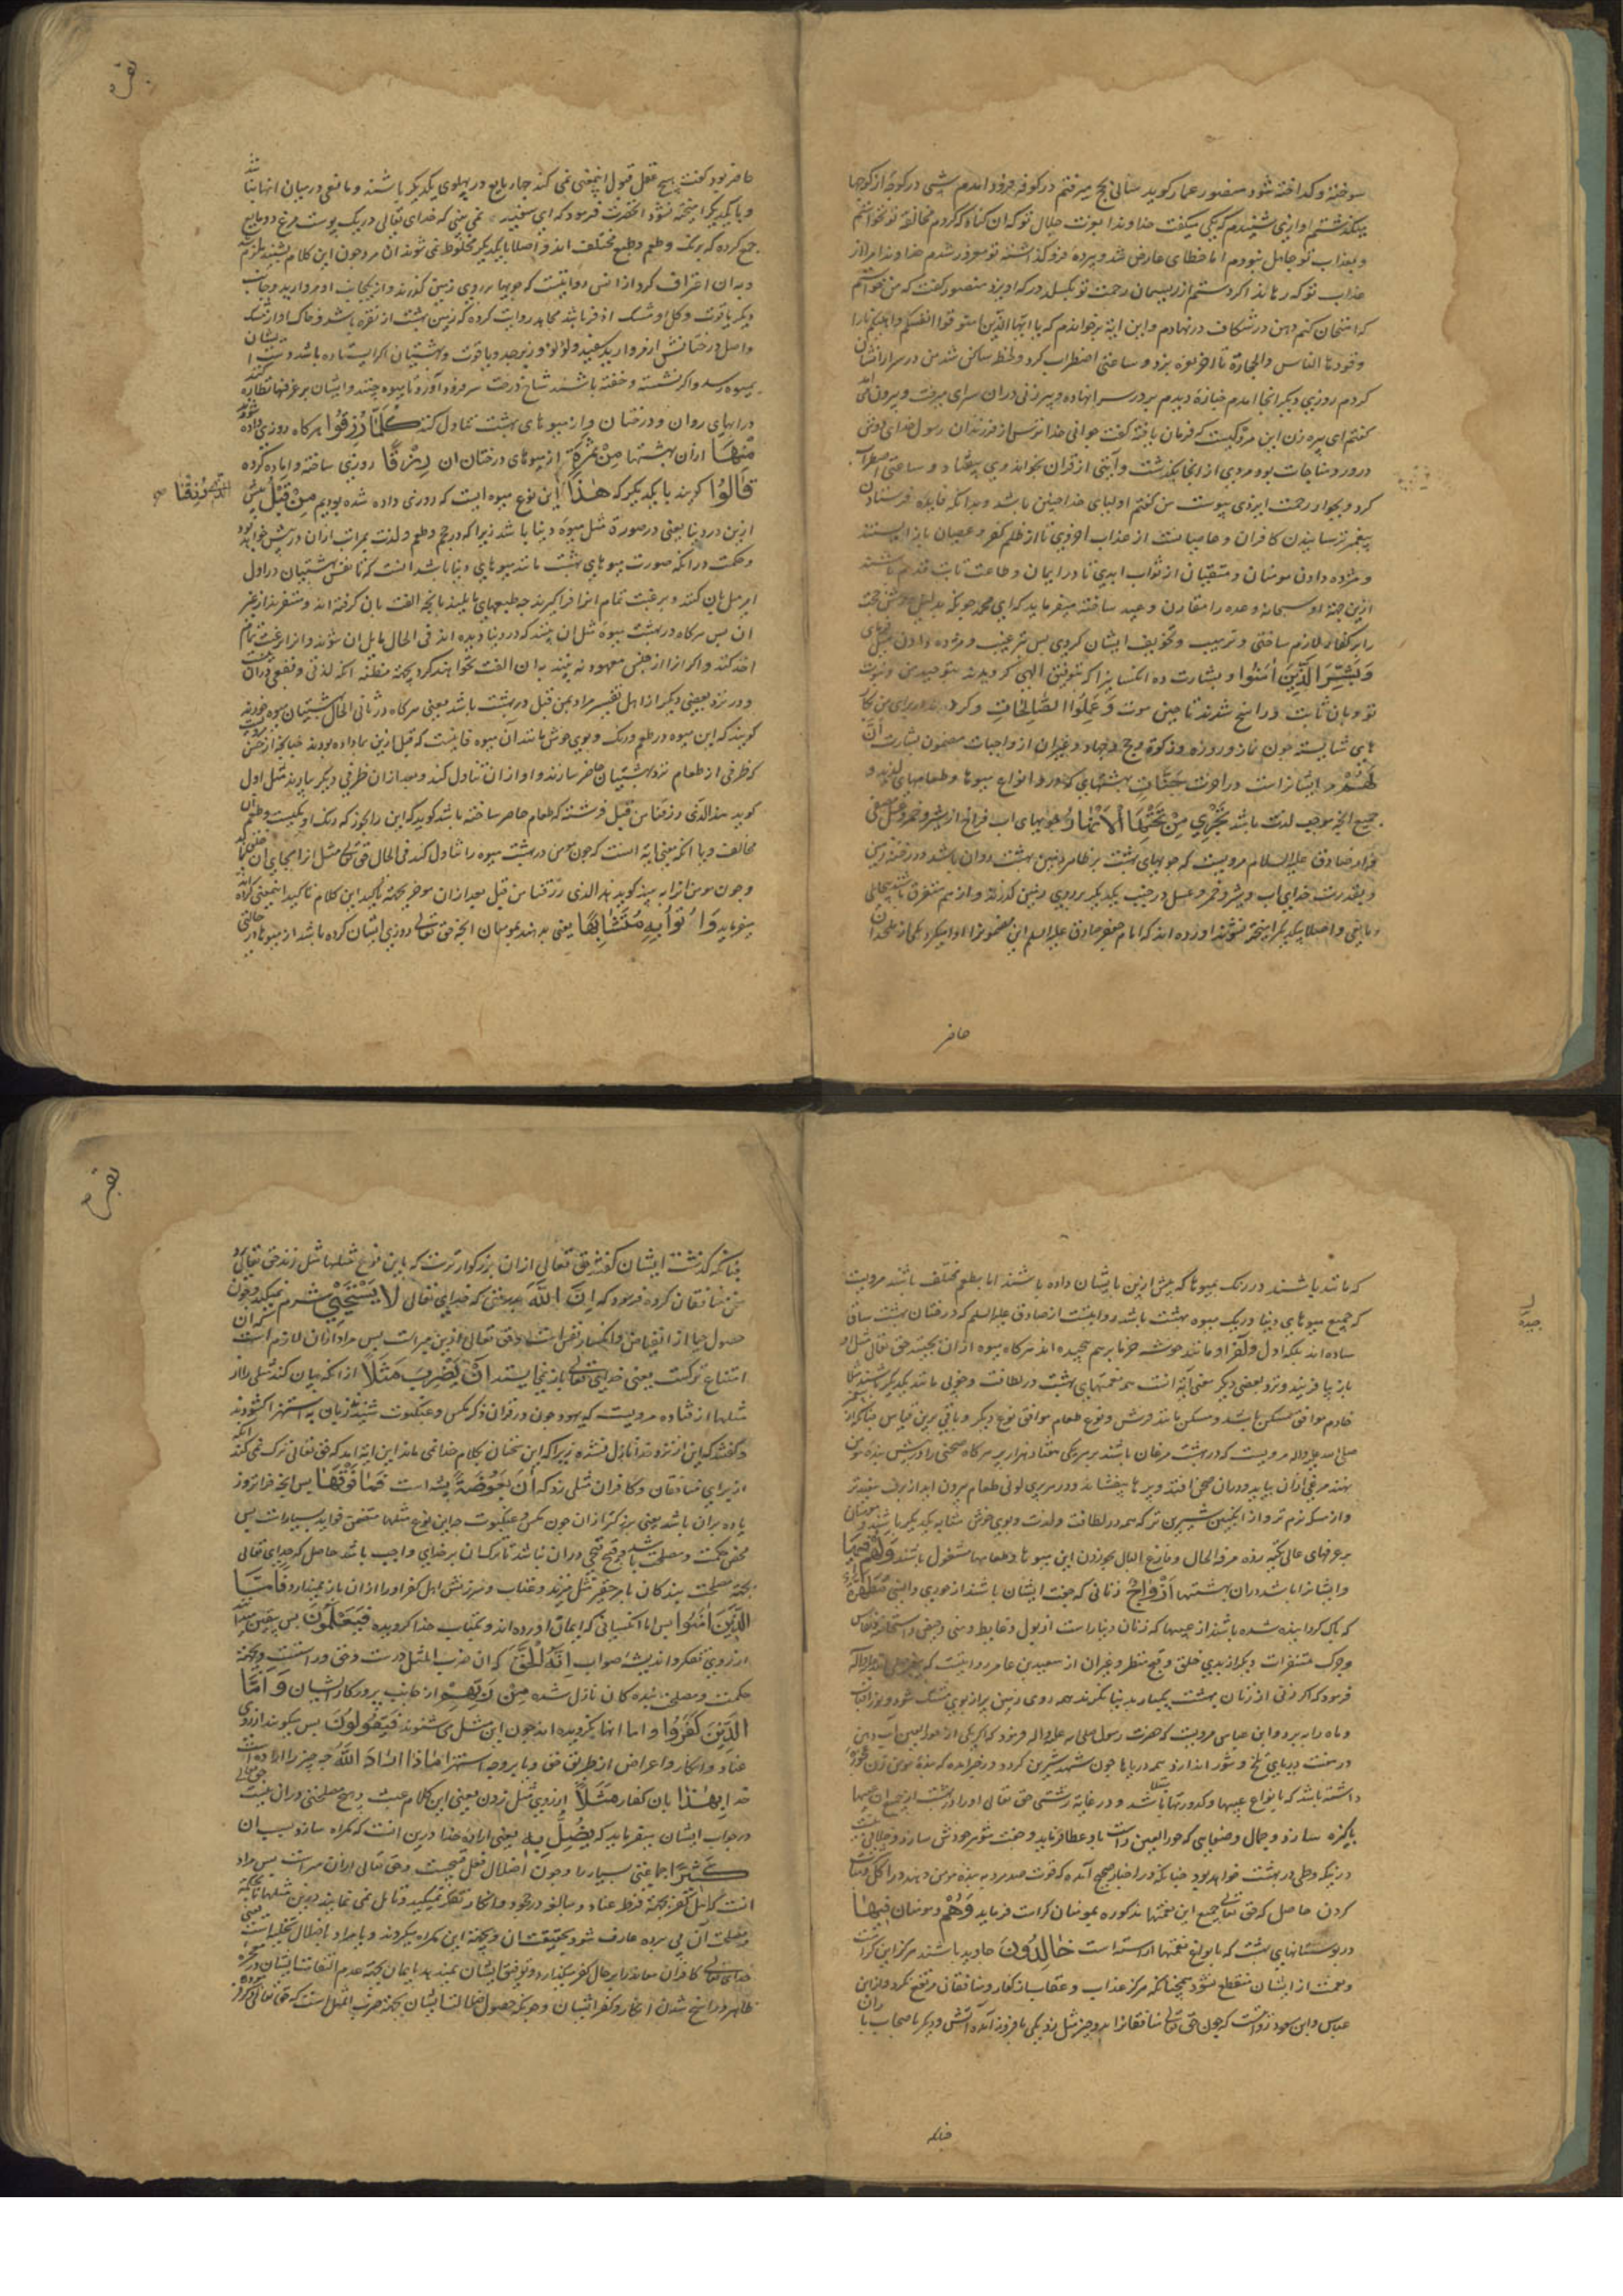 سوخته و کداخته شود منصور عمار کوید سالی بحج میرفتم در کوفه فرود امدم شبی در کوچهٔ از کوچها
میکذشتم اوازی شنیدم که یکی میکفت خداوندا بعزت جلال تو که ان کناه که کردم مخالفة تو نخواستم
و بعذاب تو جاهل نبودم اما خطای عارض شد و پردهٔ فرو کذاشتهٔ تو مغرور شدم خداوندا مرا از
عذاب تو که رهاند اکر دستم از ریسمان رحمت تو بکسلد در که اویزد منصور کفت که من خواستم
که امتحان کنم دهن در شکاف در نهادم و این ایة برخواندم که یا ایها الذین امنوا قوا انفسکم و اهلیکم نارا
وقودها الناس و الحجارة تا اخر او نعرهٔ بزد و ساعتی اضطراب کرد و لحظهٔ ساکن شد من در سرا را نشان
کردم روزی دیکر انجا امدم جنازهٔ دیدم بر در سرا نهاده و پیرزنی دران سرای میرفت و بیرون می امد
کفتم ای پیره زن این مرده کیست که فرمان یافته کفت جوانی خدا ترس از فرزندان رسول خدای دوش
در ورد مناجات بود مردی از انجا بکذشت و آیتی از قران بخواند وی بیفتاد و ساعتی اضطراب
کرد و بجوار رحمت ایزدی پیوست من کفتم اولیای خدا چنین باشد و بدانکه فایدهٔ فرستادن
پیغمبر ترسانیدن کافران و عاصیانست از عذاب اخروی تا از ظلم کفر و عصیان باز ایستند
و مژده دادن مومنان و متقیان از ثواب ابدی تا در ایمان و طاعت ثابت قدم باشند
ازین جهة او سبحانه وعده را مقارن وعید ساخته میفرماید که ای محمد چونکه بدلیل روشن حجت
را بر کفار لازم ساختی و ترهیب و تخویف ایشان کردی پس ترغیب و مژده دادن
وَبَشِّرِ الَّذِینَ اٰمَنُوا و بشارت ده انکسانیرا که بتوفیق الهی کرویدند بتوحید من و نبوت
تو و بان ثابت و راسخ شدند تا حین موت وَ عَمِلُوا الصَّالِحَاتِ و کردند برای من کار
های شایسته چون نماز و روزه و زکوة و حج و جهاد و غیر ان از واجبات مضمون بشارت أَنَّ
لَهُمْ مر ایشانراست در اخرت جَنَّاتٍ بهشتهای که در و انواع میوها و طعامهای لذیذ و
جمیع انچه موجب لذت باشد تَجْرِي مِنْ تَحْتِهَا الْأَنْهَارُ جویهای اب فراخ از شیر و خمر و عسل مصفی
از صادق علیه السلام مرویست که جویهای بهشت بر ظاهر زمین بهشت روان باشد و در خنه زمین
و بقدرت خدای اب و شیر و خمر و عسل در جنب یکدیکر بر روی زمین کذرند و از هم متفرق باشند بی حایلی
و مانعی و اصلا بیکدیکر امیخته نشوند اورده اند که امام جعفر صادق علیه السلام این مضمونرا ادا میکرد یکی از ملحدان
حاضر
بقره
حاضر بود کفت هیچ عقل قبول اینمعنی نمی کند چهار مایع در پهلوی یکدیکر باشند و مانعی در میان انها نباشد
و با یکدیکر امیخته نشود انحضرت فرمود که ای سفیه نمی بینی که خدای تعالی در یک پوست مرغ دو مایع
جمع کرده که برنک و طعم و طبع مختلف اند و اصلا با یکدیکر مخلوط نمی شوند ان مرد چون این کلام بشنید ملزم شد
و بدان اعتراف کرد از انس روایتست که جویها بر روی زمین کذرند و از یکجانب او مروارید و جانب
دیکر یاقوت و کل او مشک اذفر باشد مجاهد روایت کرده که زمین بهشت از نقره باشد و خاک او از مشک
و اصل درختانش از مروارید سفید و لؤلؤ و زبرجد و یاقوت و بهشتیان اکر ایستاده باشد دست ایشان
بمیوه رسد و اکر نشسته و خفته باشند شاخ درخت سر فرود آورد تا میوه چینند و ایشان بر غرفها نظاره کنند
در ابهای روان و درختان و از میوهای بهشت تناول کنند کُلَّمَا رُزِقُوا هرکاه روزی داده شوند
مِنْهَا ازان بهشتها مِنْ ثَمَرَةٍ از میوهای درختان ان رِزْقًا روزی ساخته و اماده کرده
قَالُوا کویند با یکدیکر که هٰذَا این نوع میوه ایست که روزی داده شده بودیم مِنْ قَبْلُ پیش
الَّذِي رُزِقْنَا صح
ازین در دنیا یعنی در صورة مثل میوهٔ دنیا باشد زیرا که در حجم و طعم و لذت بمراتب ازان در پیش خواهد بود
و حکمت در انکه صورت میوهای بهشت مانند میوهای دنیا باشد انست که تا نفس بهشتیان در اول
امر میل بان کنند و برغبت تمام انرا فرا کیرند چه طبعهای مایلند بانچه الفت بان کرفته اند و متنفرند از غیر
ان پس هرکاه در بهشت میوهٔ مثل ان بینند که در دنیا دیده اند فی الحال مایل ان شوند و انرا رغبت تمام
اخذ کنند و اکر انرا از جنس معهود نه بینند بدان الفت نخواهند کرد بجهة مظنه انکه لذتی و نفعی دران نیست
و در نزد بعضی دیکر از اهل تفسیر مراد بمن قبل در بهشت باشد یعنی هرکاه در ثانی الحال بهشتیان میوه خورند
کویند که این میوه در طعم و رنک و بوی خوش مانند آن میوه فانیست که قبل ازین بما داده بودند
که ظرفی از طعام نزد بهشتیان حاضر سازند و او ازان تناول کند و بعد ازان ظرفی دیکر بیارند مثل اول
کوید هذا الذی رزقنا من قبل فرشته که طعام حاضر ساخته باشد کوید که این را بخور که رنک او یکیست و طعم ان
مخالف و یا انکه معنی ایه است که چون مومن در بهشت میوه را تناول کند فی الحال حق تعالی مثل انرا بجای ان خلق کند
و چون مومن انرا به بیند کوید هذا الذی رزقنا من قبل بعد ازان موخر بجهة تأکید این کلام تاکید اینمعنی کرده
میفرماید وَ اُتُوا بِهٖ مُتَشَابِهًا یعنی بدهند بمومنان انچه حق تعالی روزی ایشان کرده باشد از میوها در حالتی
که مانند باشند در رنک بمیوها که پیش ازین بایشان داده باشند اما بطعم مختلف باشند مرویست
که جمیع میوهای دنیا در یک میوه بهشت باشد و روایتست از صادق علیه السلم که درختان بهشت ساق
ساده اند بلکه اول و آخر او مانند خوشه خرما بر هم پیچیده اند هرکاه میوه ازان بچینند حق تعالی مثل او
باز بیافریند و نزد بعضی دیکر معنی آیه انست همه نعمتهای بهشت در لطافت و خوبی مانند یکدیکر باشند مثلا
خادم موافق مسکن باشد و مسکن مانند فرش و نوع طعام موافق نوع دیکر و باقی برین قیاس
صلی الله علیه و اله مرویست که در بهشت مرغان باشند بر هر یکی هفتاد هزار پر هرکاه صحنی را در پیش بندهٔ مومن
نهند مرغی ازان بیاید و در میان صحن افتد و پرها بیفشاند و در هر پری لونی طعام بیرون اید از برف سفیدتر
و از مسکه نرم تر و از انکبین شیرین تر که همه در لطافت و لذت و بوی خوش مشابه یکدیکر باشند و مومنان
بر غرفهای عالی تکیه زده مرفه الحال و فارغ البال بخوردن این میوها و طعامها مشغول باشند وَلَهُمْ فِیهَا
و ایشانرا باشد دران بهشتها اَزْوَاجٌ زنانی که جفت ایشان باشند از حوری و انسی مُطَهَّرَةٌ
که پاک کردانیده شده باشند از عیبها که زنان دنیا راست از بول و غایط و منی و حیض و استحاضه و نفاس
و چرک متنفرات دیکر از بدی خلق و قبح منظر و غیر ان از سعید بن عامر روایتست که پیغمبر صلی الله علیه و آله
فرمود که اکر زنی از زنان بهشت یکبار بدنیا نکرند همه روی زمین پر از بوی مشک شود و نور افتاب
و ماه را به برد و ابن عباس مرویست که حضرت رسول صلی الله علیه و اله فرمود که اکر یکی از حور العین آب دهن
در هفت دریای تلخ و شور اندازد همه دریاها چون شهد شیرین کردد و در خبر امده که بندهٔ مومن زن
داشته باشد که بانواع عیبها و کدورتها مبتلا باشد و در غایة زشتی حق تعالی او را در بهشت از جمیع ان عیبها
پاکیزه سازد و جمال و صفایی که حور العین راست باو عطا فرماید و جفت شوهر خودش سازد
در نیکه وطی در بهشت خواهد بود چنانکه در اخبار صحیح آمده که قوت صد مرد به بنده مومن دهند در اکل
کردن حاصل که حق تعالی جمیع این نعمتها مذکوره بمومنان کرامت فرماید وَهُمْ و مومنان فِیهَا
در بوستانهای بهشت که بانواع نعمتها آراسته است خَالِدُونَ جاوید باشند هرکز این کرامت
و نعمت از ایشان منقطع نشود همچنانکه هرکز عذاب و عقاب از کفار و منافقان مرتفع نکردد
عباس و ابن مسعود روایتست که چون حق تعالی منافقانرا بدو چیز مثل زد یکی بافروزنده آتش و دیکر باصحاب باران
چنانکه
بقره
چنانکه کذشت ایشان کفتند حق تعالی ازان بزرکوارترست که باین نوع مثلها مثل زند حق تعالی
منافقان کرده فرمود که اِنَّ اللّٰهَ بدرستی که خدای تعالی لَا یَسْتَحْیِي شرم نمیکند
حصول حیا از انقباض و انکسار نفس است و حق تعالی ازین مبراست پس مراد ازان لازم ان که ان
امتناع ترکست یعنی خدای تعالی باز نمی ایستد اَنْ یَضْرِبَ مَثَلًا از انکه بیان کند مثلی را از
مثلها از قتاده مرویست که یهود چون در قران ذکر مکس و عنکبوت شنیدند زبان به استهزا کشودند
و کفتند که این از نزد خدا نازل نشده زیرا که این سخنان بکلام خدا نمی ماند این ایة امد که حق تعالی ترک نمی کند انکه
از برای منافقان و کافران مثلی زند که اَنْ بَعُوضَةً پشه است فَمَا فَوْقَهَا پس انچه فراتر و
زیاده بران باشد یعنی بزرکتر ازان چون مکس و عنکبوت چه این نوع مثلها متضمن فواید بسیار است پس
محض حکمت و مصلحت باشد و هیچ قبحی دران نباشد تا ترک ان بر خدای واجب باشد حاصل که خدای تعالی
بجهة مصلحت بندکان باهر حقیر مثل میزند و عتاب و سرزنش اهل کفر او را ازان باز نمیدارد فَاَمَّا
الَّذِینَ اٰمَنُوا پس اما انکسانی که ایمان اورده اند و بکتاب خدا کرویده فَیَعْلَمُونَ پس یقین میدانند
از روی تفکر و اندیشهٔ صواب اَنَّهُ الْحَقُّ که ان ضرب المثل درست و حق و راستست و بجهة
حکمت و مصلحت بندکان نازل شده مِنْ رَبِّهِمْ از جانب پروردکار ایشان وَ اَمَّا
الَّذِینَ کَفَرُوا و اما انها نکرویده اند چون این مثل می شنوند فَیَقُولُونَ پس میکویند از روی
عناد و انکار و اعراض از طریق حق و یا بر وجه استهزا مَاذَا اَرَادَ اللّٰهُ چه چیز را اراده است
خدا بِهٰذَا بان کفار مَثَلًا از روی مثل زدن یعنی این کلام عبث و هیچ مصلحتی دران نیست حق تعالی
در جواب ایشان میفرماید که یُضِلُّ بِهٖ یعنی ارادهٔ خدا درین انست که کمراه سازد بسبب ان
کَثِیرًا جماعتی بسیار را و چون اضلال فعل قبیحست و حق تعالی ازان مبراست پس مراد
انست که اهل کفر بجهة فرط عناد و مبالغه در جحود و انکار تفکر نمیکنند و تأمل نمی نمایند درین مثلها تا بحکمة
و مصلحت آن پی برده عارف شود بحقیقت ان و بجهة این کمراه میکردند و یا مراد باضلال تخلیه است یعنی
خدای تعالی کافران معاند را بر حال کفر میکذارد و توفیق ایشان نمیدهد بایمان بجهة عدم التفات ایشان
ظاهر و راسخ شدن انکار و کفر ایشان و چونکه حصول ضلالت ایشان بجهة ضرب المثل است که حق تعالی ذکر کرده